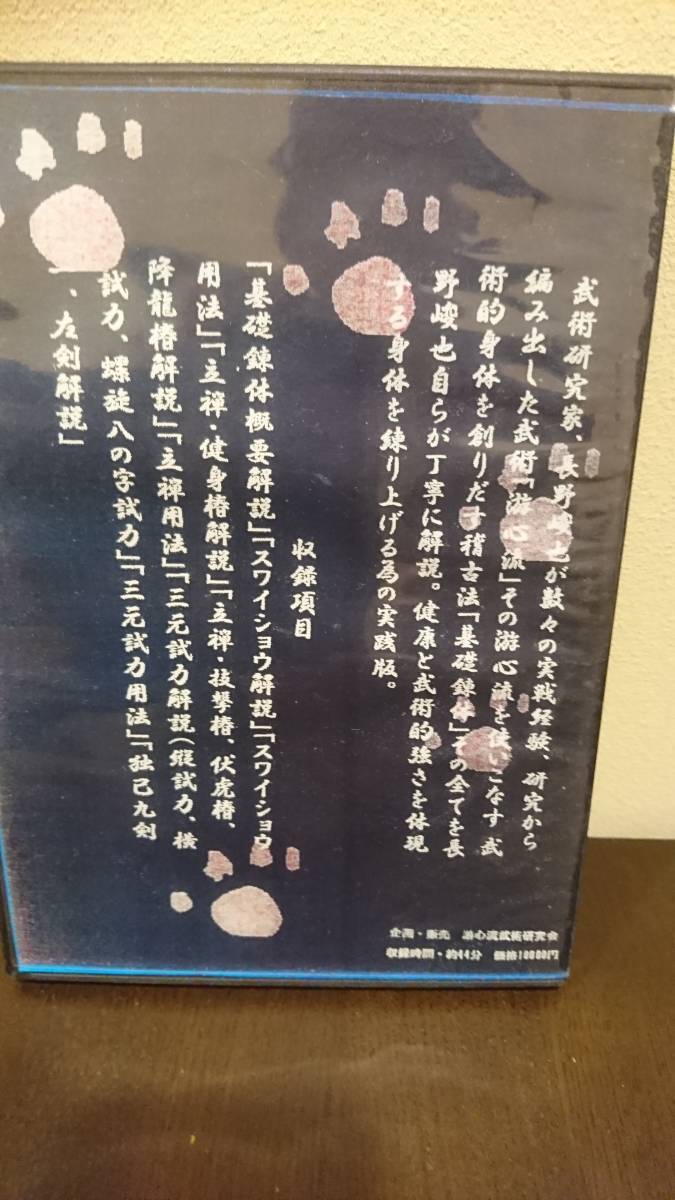 武術研究家、長野峻也が数々の実戦経験、研究から
編み出した武術「游心流」その游心流を使いこなす武
術的身体を創りだす稽古法「基礎錬体」その全てを長
野峻也自らが丁寧に解説。健康と武術的強さを体現
する身体を練り上げる為の実践版。
収録項目
「基礎錬体概要解説」「スワイショウ解説」「スワイショウ
用法」「立禅・健身椿解説」「立禅・技撃椿、伏虎椿、
降龍椿解説」「立禅用法」「三元試力解説(縦試力、横
試力、螺旋八の字試力」「三元試力用法」「独己九剣
、左剣解説」
企画・販売 游心流武術研究会
収録時間・約44分 価格10000円